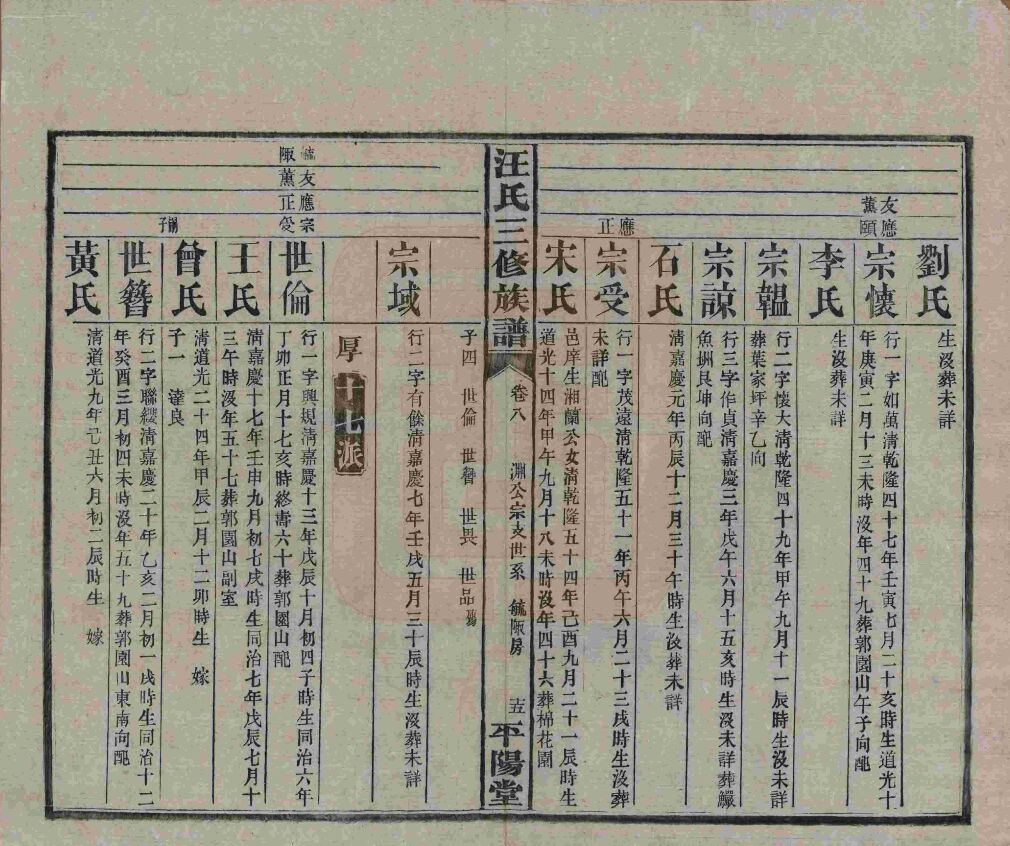 劉氏
生沒葬未詳
友應
薰頤
宗懷
行一字如萬清乾隆四十七年壬寅七月二十亥時生道光十
年庚寅二月十三未時沒年四十九葬郭園山午子向配
李氏
生沒葬未詳
宗韞
行二字懷大清乾隆四十九年甲午九月十一辰時生沒未詳
葬葉家坪辛乙向
宗諒
行三字作貞清嘉慶三年戊午六月十五亥時生沒未詳葬鱖
魚堋艮坤向配
石氏
清嘉慶元年丙辰十二月三十午時生沒葬未詳
應
正
宗受
行一字茂遠清乾隆五十一年丙午六月二十三戌時生沒葬
未詳配
宋氏
邑庠生湘蘭公女清乾隆五十四年己酉九月二十一辰時生
道光十四年甲午九月十八未時沒年四十六葬棉花園
汪氏三修族譜
卷八
淵公宗支世系
毓陬房
十五
平陽堂
子四 世倫 世簪 世畏 世品殤
宗域
行二字有餘清嘉慶七年壬戌五月三十辰時生沒葬未詳
厚
十七派
毓友應宗
陬薰正受
世倫
行一字興規清嘉慶十三年戊辰十月初四子時生同治六年
丁卯正月十七亥時終壽六十葬郭園山配
王氏
清嘉慶十七年壬申九月初七戌時生同治七年戊辰七月十
三午時沒年五十七葬郭園山副室
曾氏
清道光二十四年甲辰二月十二卯時生 嫁
子一 達良
嗣子
世簪
行二字聯纓清嘉慶二十年乙亥二月初一戌時生同治十二
年癸酉三月初四未時沒年五十九葬郭園山東南向配
黃氏
清道光九年己丑六月初二辰時生 嫁